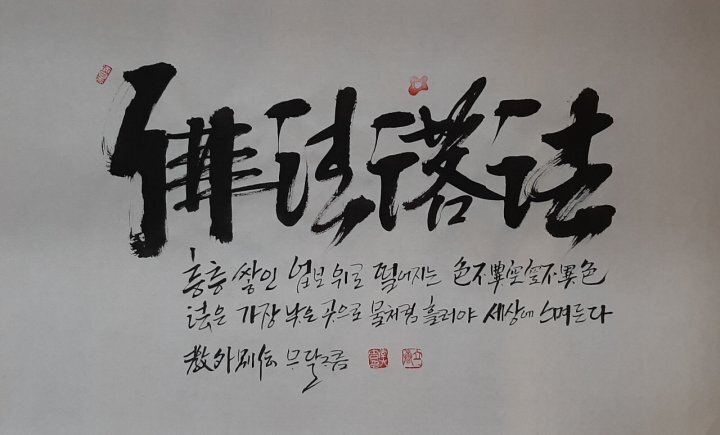 佛法落法
층층 쌓인 업보 위로 떨어지는 色不異空空不異色
法은 가장 낮은 곳으로 물처럼 흘러야 세상에 스며든다
敎外別伝